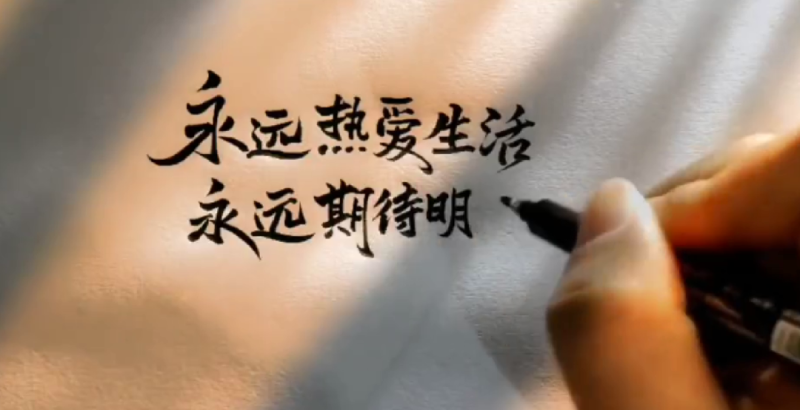 永远热爱生活
永远期待明